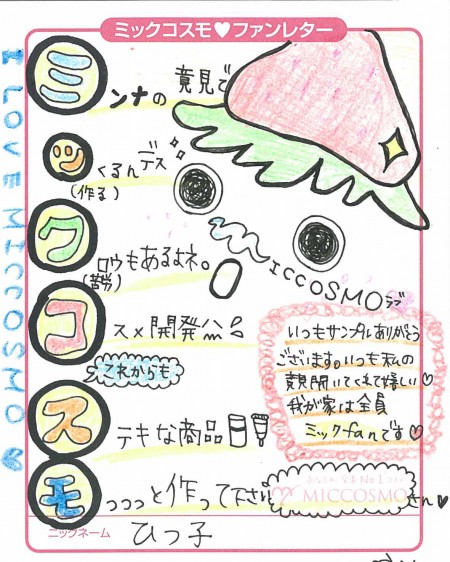 ミックコスモ♥ファンレター
I LOVE MICCOSMO♥
ミンナの意見で
ツくるんデス
(作る)
クロウもあるよネ。
(苦労)
コスメ開発
これからも
ステキな商品
モっっっと作って下さい
MICCOSMOさん♥
MICCOSMOラブ
いつもサンプルありがとう
ございます。いつも私の
意見聞いてくれて嬉しい♡
我が家は全員
ミックfanです♥
ニックネーム ひっ子